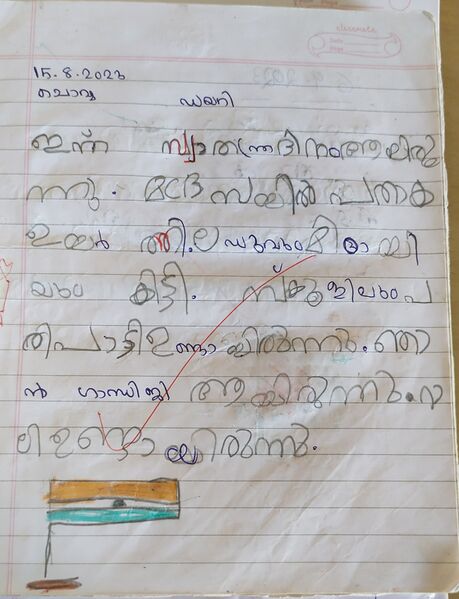 classmate
Date
Page
15.8.2023
ചൊവ്വ ഡയറി
ഇന്ന് സ്വാതന്ത്ര്യദിനംആയിരു
ന്നു. പതാക
ഉയർത്തി. ലഡുവും മിഠായി
യും കിട്ടി. സ്കൂളിലും പ
രിപാടി ഉണ്ടായിരുന്നു. ഞാ
ൻ ഗാന്ധിജി ആയിരുന്നു. റാ
ലി ഉണ്ടായിരുന്നു.